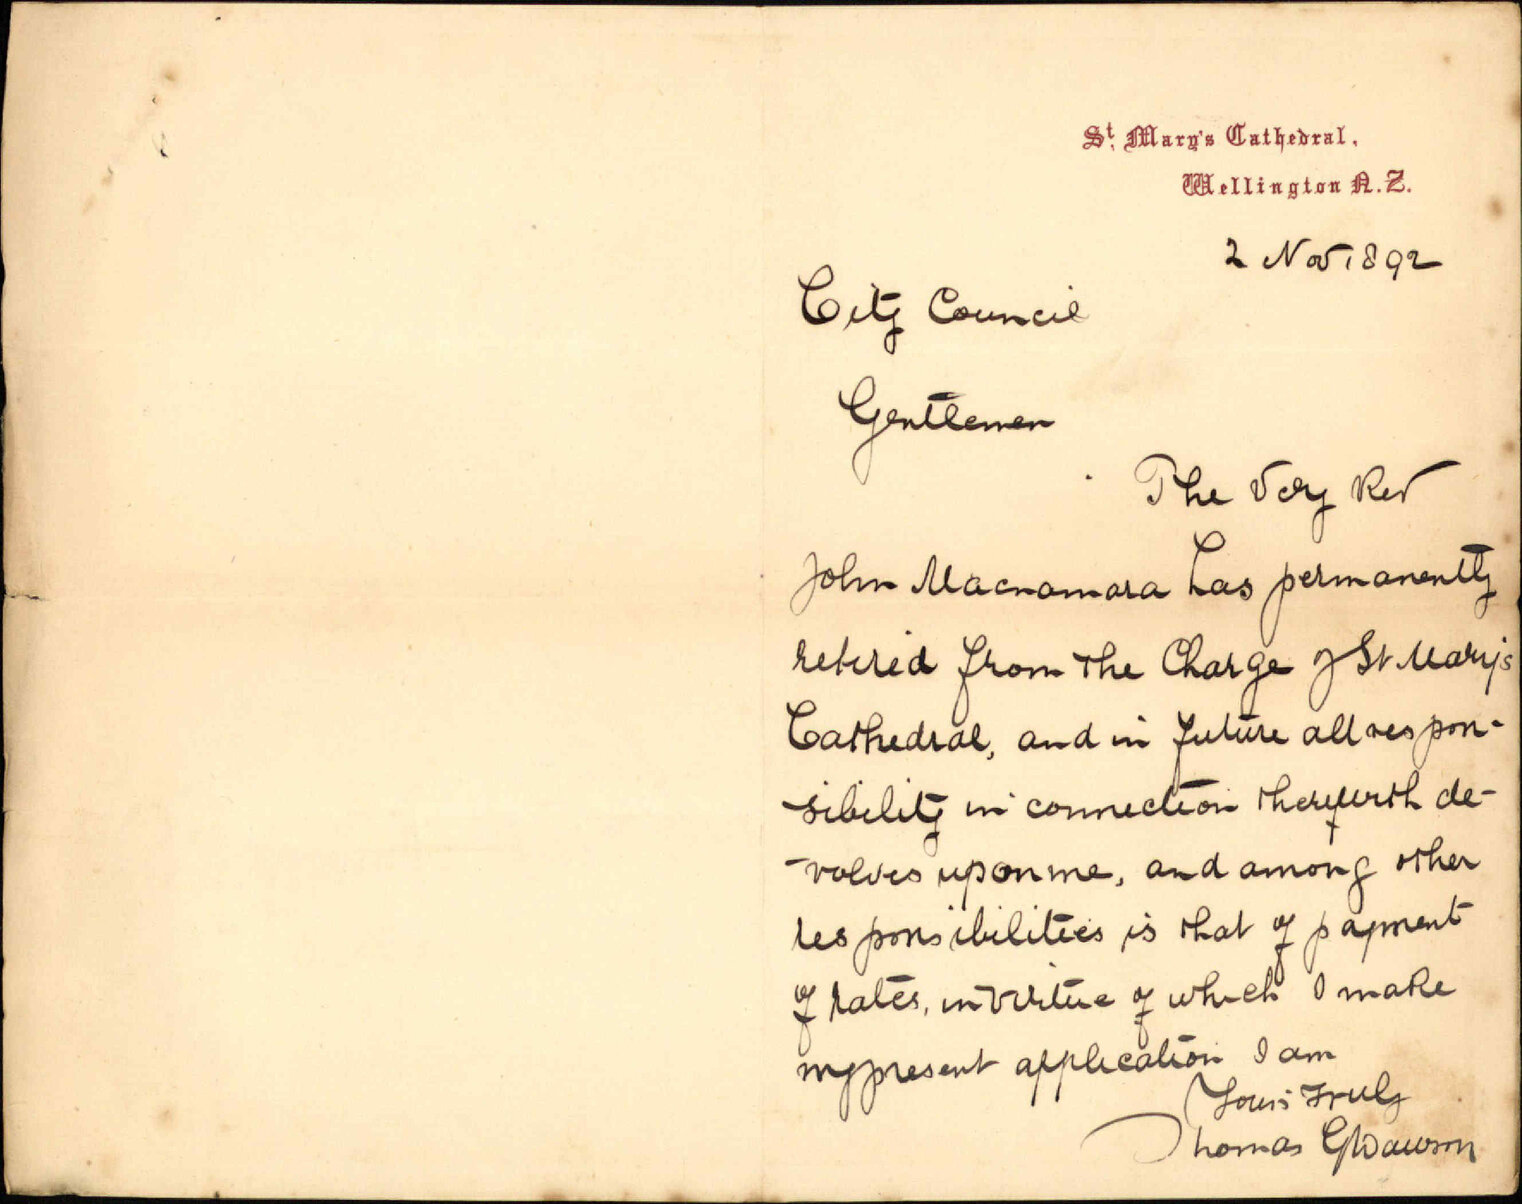 St. Mary's Cathedral,
Wellington N.Z.
2 Nov 1892
City Council
Gentlemen
The Very Rev
John Macnamara has permanently
retired from the Charge of St Mary's
Cathedral, and in future all respon-
-sibility in connection therewith de-
-volves upon me, and among other
responsibilities is that of payment
of rates, in virtue of which I make
my present application I am
Yours truly
Thomas G Dawson